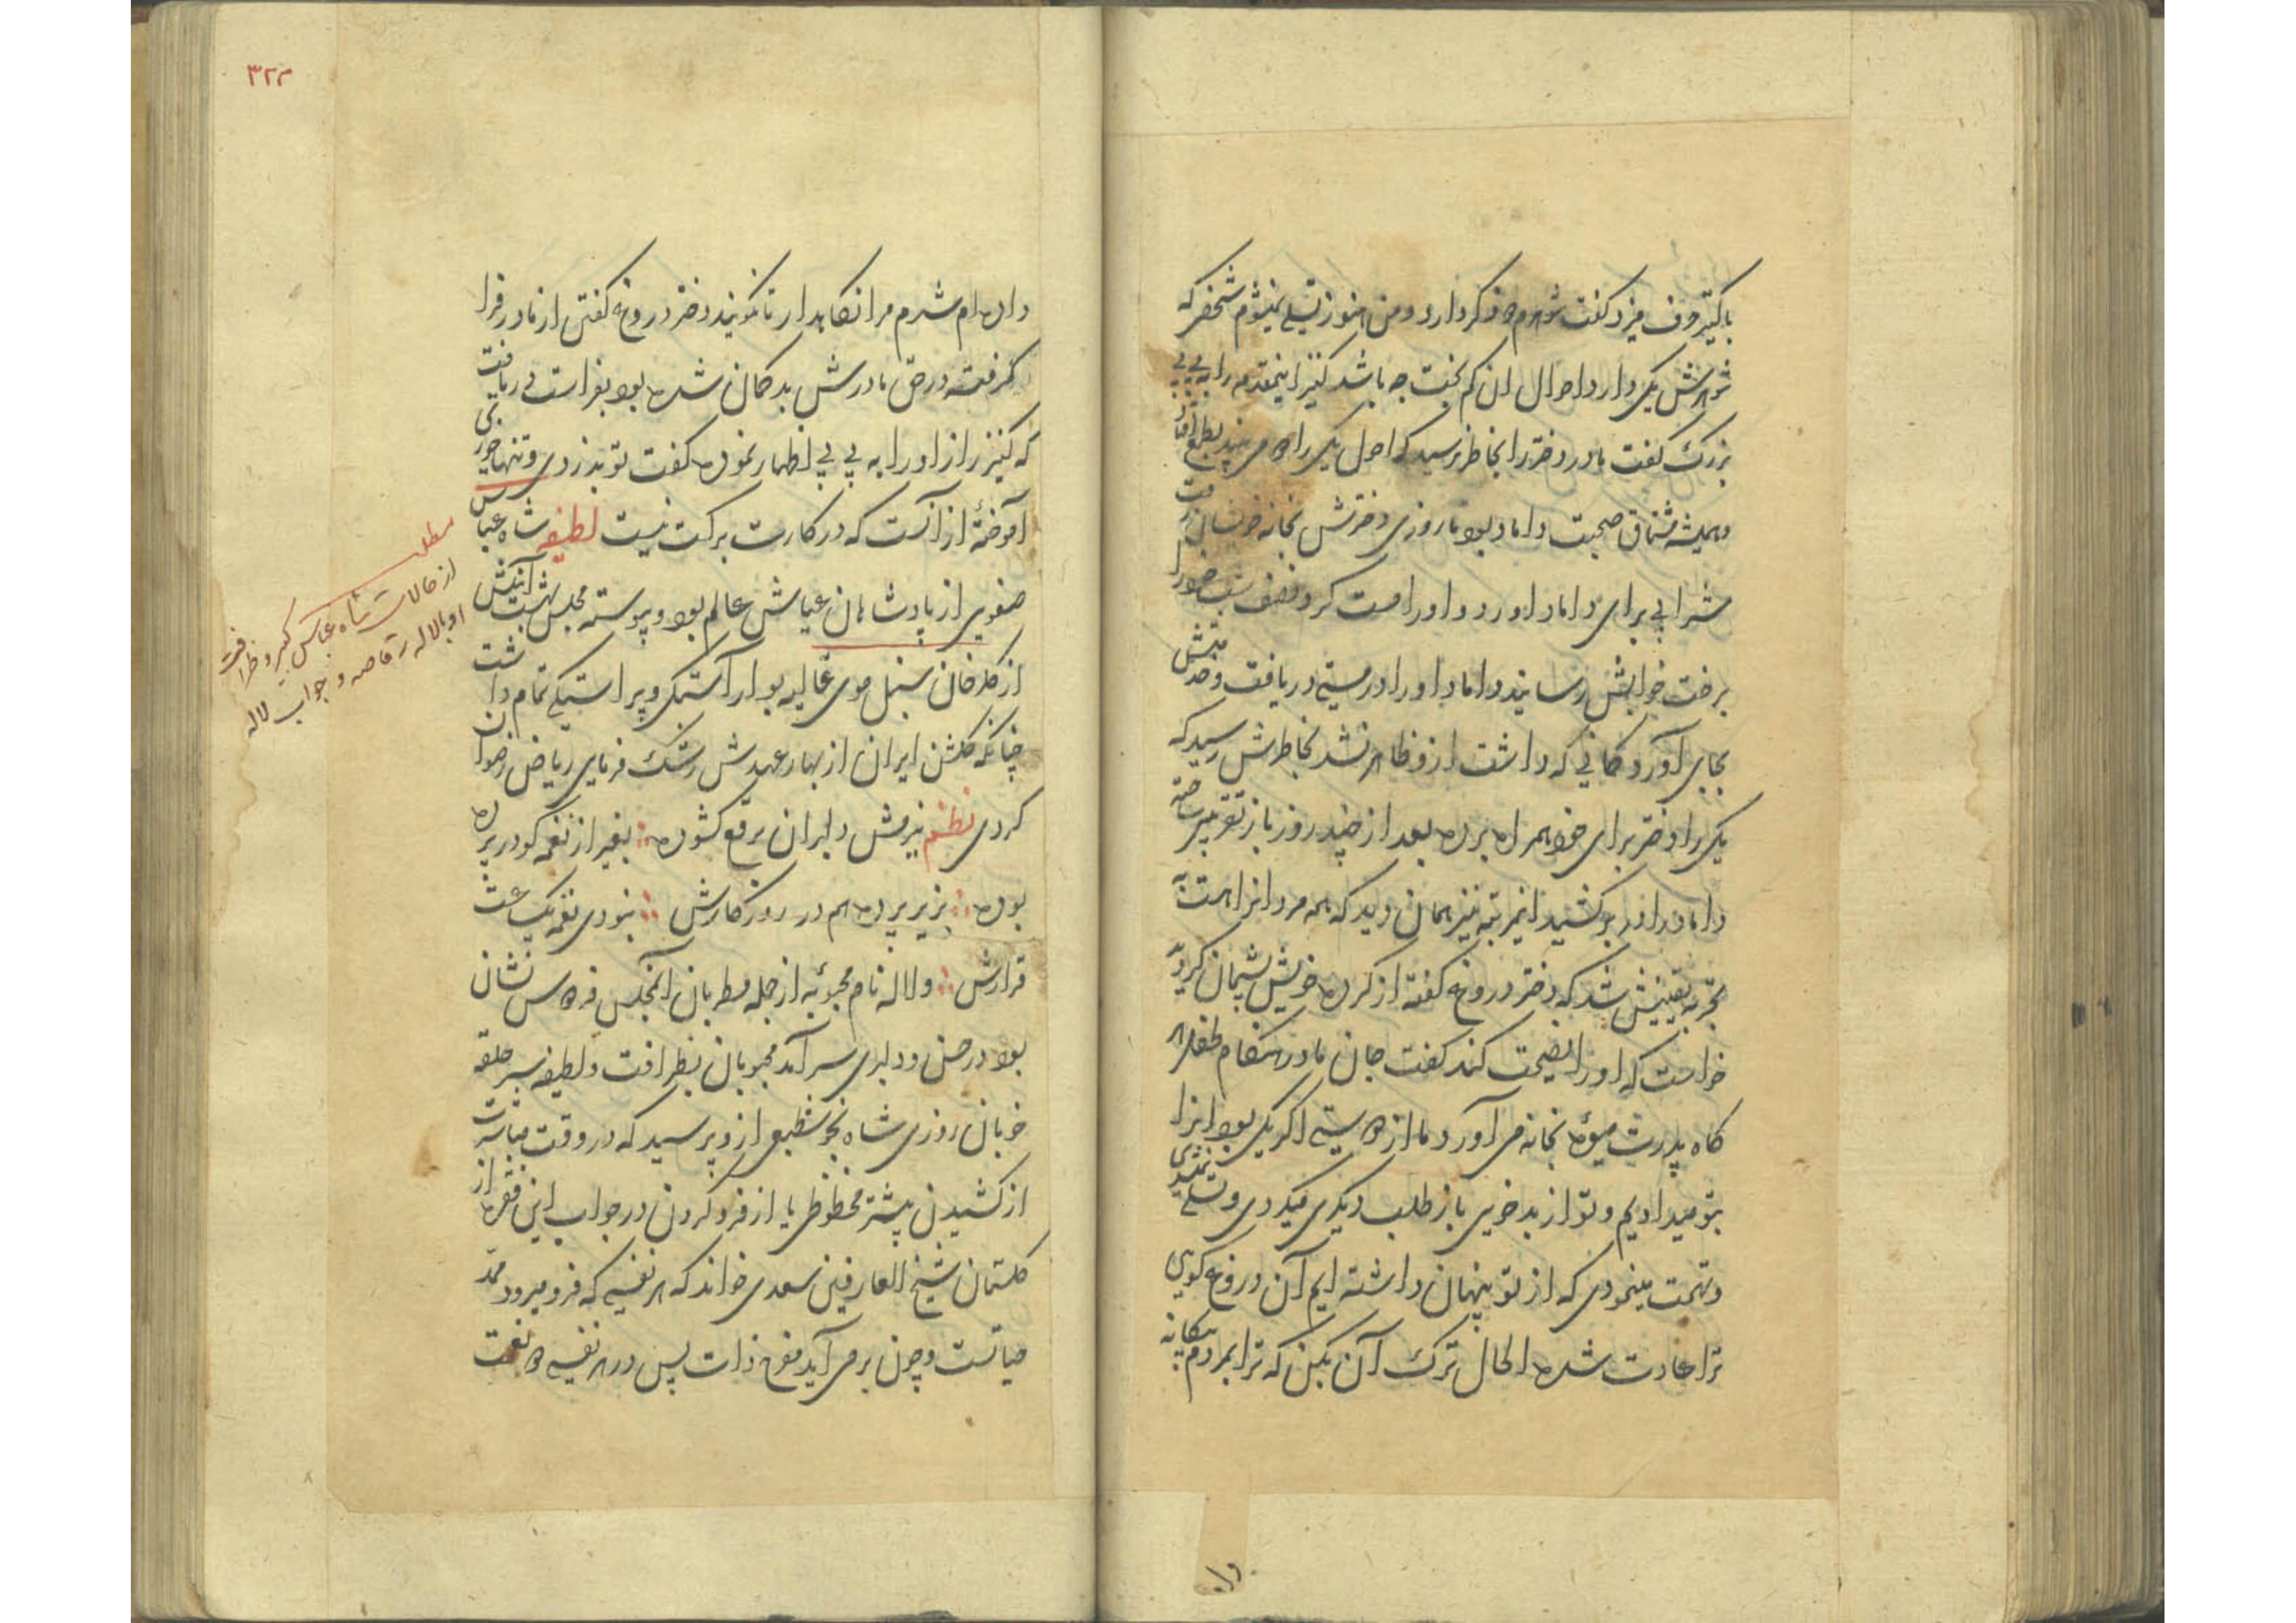 باکنیز حرف میزد گفت شوهرم دو ذکر دارد و من هنوز تسلی نمیشوم شخصی که
شوهرش یکی دارد احوال آن کم بخت چه باشد کنیز اینمقدمه را به بی بی
بزرک گفت مادر دختر را بخاطر رسید که احول یکی را دو می بیند بطمع افتاد
و همیشه مشتاق صحبت داماد بود تا روزی دخترش بخانه خونشان رفت
شرابی برای داماد آورد و او را مست کرد نصف شب خود را
برخت خوابش رسانید داماد او را در مستی دریافت و خدمتش
بجای آورد کمانی که داشت ازو ظاهر نشد بخاطرش رسید که
یکی را دختر برای خود همراه برده بعد از چند روز باز تقریبی ساخته
داماد را در بر کشید اینمرتبه نیز همان دید که همه مردانرا هست
بتجربه یقینش شد که دختر دروغ گفته از کرده خویش پشیمان کردید
خواست که او را نصیحت کند گفت جان مادر هنگام طفلی هر
گاه پدرت میوه بخانه می آورد ما از دو سیتی اگر یکی بود آنرا
بتو میدادیم و تو از بدخویی باز طلب دیگری میکردی و تسلی نمیشدی
و تهمت مینمودی که از تو پنهان داشته ایم آن دروغ کویی
ترا عادت شده الحال ترک آن بکن که ترا بمردم بیکانه
وا
۳۲۲
داده ام شرم مرا نکاهدار تا نکویند دختر دروغ کفتن از مادر فرا
کرفته دختر مادرش بدکمان شده بود بفراست دریافت
که کنیز راز او را به بی بی اظهار نموده کفت تو بدزدی و تنها خوری
آموخته از آنست که در کارت برکت نیست لطیفه شاه عباس
صفوی از پادشاهان عیاش عالم بود و پیوسته مجلس بهشت آئینش
از کلرخان سنبل موی غالیه بو آراستکی و پیراستکی تمام داشت
چنانکه کلشن ایران از بهار عهدش رشک فرمای ریاض رضوان
کردی نظم ببزمش دلبران برقع کشوده بغیر از نغمه کو در پرده
بوده بزیر پرده هم در روزکارش نبودی نغمه یکساعت
قرارش و لاله نام محبوبه از جمله مطربان آنمجلس فردوس نشان
بود در حسن و دلبری سرآمد محبوبان بظرافت و لطیفه سرحلقه
خوبان روزی شاه بخوشطبعی ازو پرسید که در وقت مباشرت
از کشیدن بیشتر محظوظی یا از فرو کردن در جواب این فقره از
کلستان شیخ العارفین سعدی خواند که هر نفسی که فرو میرود ممد
حیاتست و چون برمی آید مفرح ذات پس در هر نفسی دو نعمت
مطلب
از حالات شاه عباس کبیر و ظرافت
او با لاله رقاصه و جواب لاله